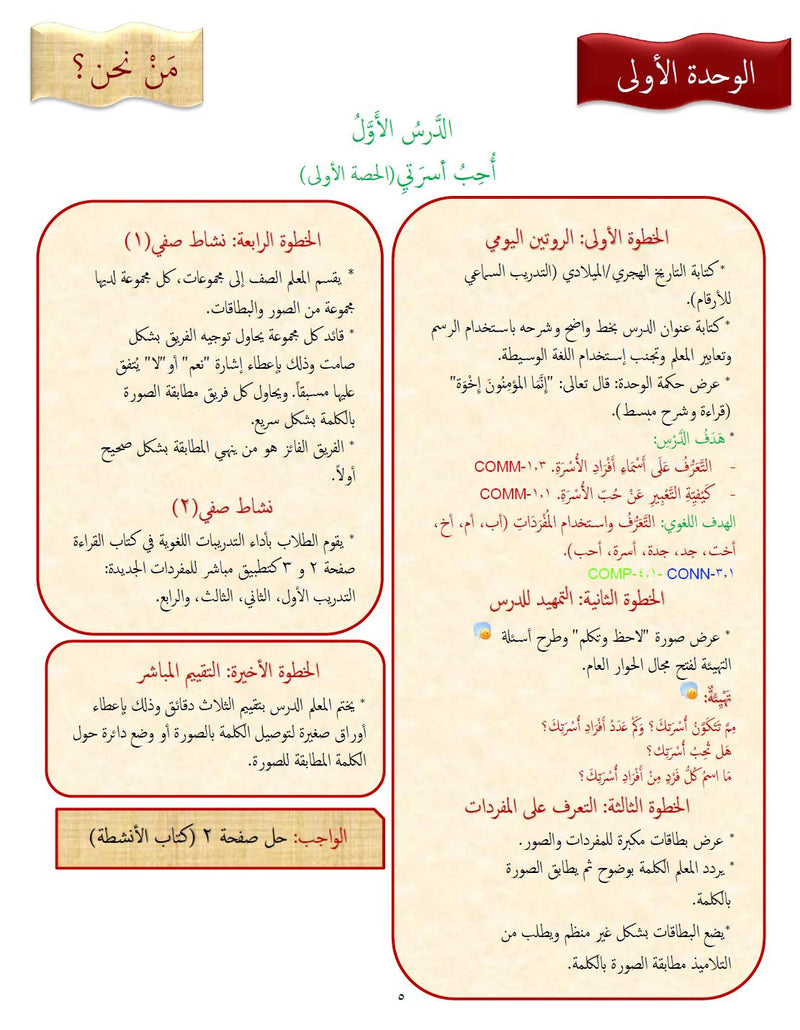 الوحدة الأولى
مَنْ نحن؟
الدَّرسُ الأَوَّلُ
أُحِبُ أسرَتيِ(الحصة الأولى)
الخطوة الأولى: الروتين اليومي
*كتابة التاريخ الهجري/الميلادي (التدريب السماعي
للأرقام).
*كتابة عنوان الدرس بخط واضح وشرحه باستخدام الرسم
وتعابير المعلم وتجنب إستخدام اللغة الوسيطة.
* عرض حكمة الوحدة: قال تعالى: "إنَّمَا المؤمِنُونَ إخْوَة"
(قراءة وشرح مبسط).
* هَدَفُ الدَّرْسِ:
- التَّعَرُّفُ عَلَى أَسْمَاءِ أَفْرَادِ الأُسْرَةِ. COMM-١.٣
- كَيْفِيَّةِ التَّعْبِيرِ عَنْ حُبَ الأُسْرَةِ. COMM-١.١
الهدف اللغوي: التَّعَرُّفُ واستخدام المُفْرَدَاتِ (أب، أم، أخ،
أخت، جد، جدة، أسرة، أحب).
COMP-٤.١- CONN-٣.١
الخطوة الثانية: التمهيد للدرس
* عرض صورة "لاحظ وتكلم" وطرح أسئلة
التهيئة لفتح مجال الحوار العام.
تَهْيِئَةٌ:
مِمَّ تَتَكَوَّنُ أُسْرَتِكَ؟ وَكَمْ عَدَدُ أَفْرَادِ أُسْرَتِكَ؟
هَل تُحِبُ أُسْرَتِك؟
مَا اسمُ كُلُّ فَرَدٍ مِنْ أَفْرَادِ أُسْرَتِكَ؟
الخطوة الثالثة: التعرف على المفردات
* عرض بطاقات مكبرة للمفردات والصور.
* يردد المعلم الكلمة بوضوح ثم يطابق الصورة
بالكلمة.
*يضع البطاقات بشكل غير منظم ويطلب من
التلاميذ مطابقة الصورة بالكلمة.
الخطوة الرابعة: نشاط صفي(١)
* يقسم المعلم الصف إلى مجموعات،كل مجموعة لديها
مجموعة من الصور والبطاقات.
* قائد كل مجموعة يحاول توجيه الفريق بشكل
صامت وذلك بإعطاء إشارة "نعم" أو"لا" يُتفق
عليها مسبقاً. ويحاول كل فريق مطابقة الصورة
بالكلمة بشكل سريع.
* الفريق الفائز هو من ينهي المطابقة بشكل صحيح
أولاً.
نشاط صفي(٢)
* يقوم الطلاب بأداء التدريبات اللغوية في كتاب القراءة
صفحة ٢ و ٣ كتطبيق مباشر للمفردات الجديدة:
التدريب الأول، الثاني، الثالث، والرابع.
الخطوة الأخيرة: التقييم المباشر
* يختم المعلم الدرس بتقييم الثلاث دقائق وذلك بإعطاء
أوراق صغيرة لتوصيل الكلمة بالصورة أو وضع دائرة حول
الكلمة المطابقة للصورة.
الواجب: حل صفحة ٢ (كتاب الأنشطة)
٥